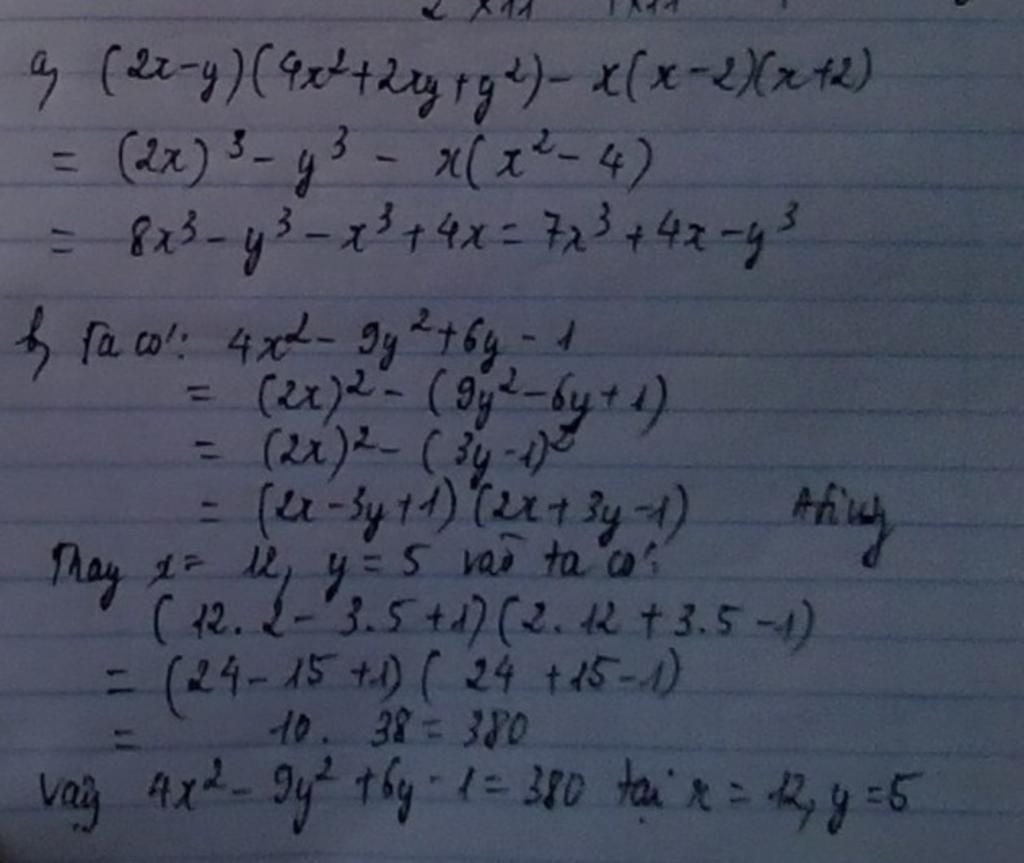 a) (2x-y)(4x²+2xy+y²)- x(x-2)(x+2)
= (2x)³- y³ - x(x²-4)
= 8x³-y³-x³+4x=7x³+4x-y³
b) Ta có: 4x²- 9y²+6y-1
= (2x)²- (9y²-6y+1)
= (2x)²- (3y-1)²
= (2x-3y+1)(2x+3y-1)
Thay x= 12, y=5 vào ta có:
(12.2- 3.5+1)(2.12+3.5-1)
= (24-15+1)(24+15-1)
= 10. 38= 380
Vậy 4x²- 9y²+6y-1=380 tại x=12, y=5